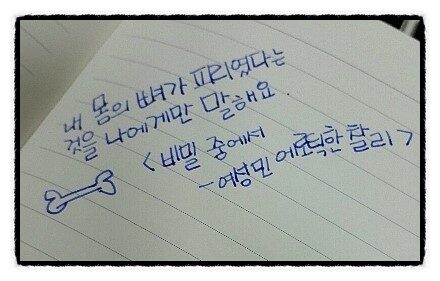 내 몸의 뼈가 피리였다는
것을 나에게만 말해요.
<비밀 중에서
- 여성민 에로틱한 찰리>